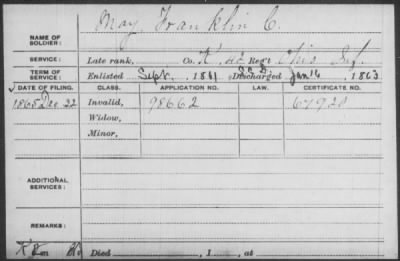 May, Franklin C.
NAME OF SOLDIER:
SERVICE: Late rank, Co. K, Reg't Ohio Inf.
TERM OF SERVICE: Enlisted Sept, 1861 Discharged Jan 16, 1863
DATE OF FILING. CLASS. APPLICATION NO. LAW. CERTIFICATE NO.
1865 Dec. 22 Invalid, 98662 67920
Widow,
Minor,
ADDITIONAL SERVICES:
REMARKS:
Died, 1, at